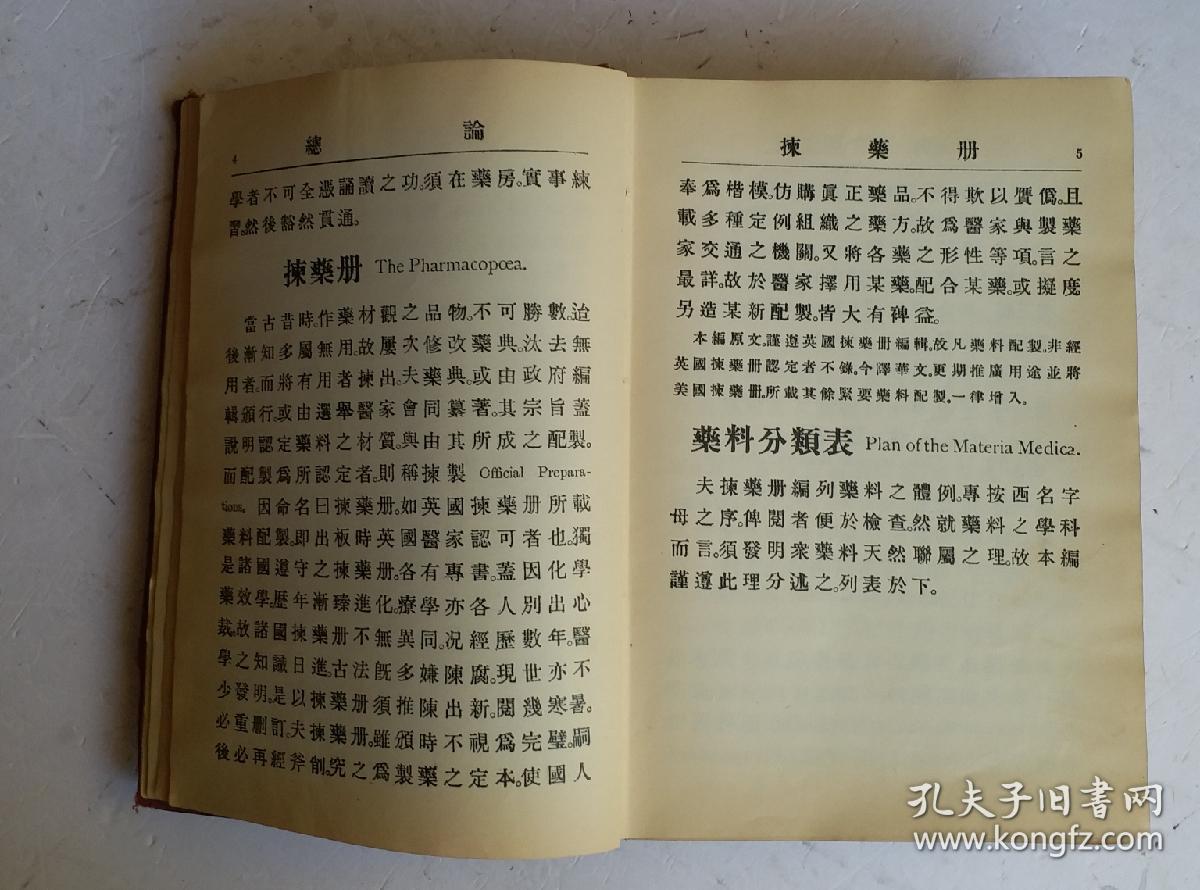 4 總論
學者不可全憑誦讀之功。須在藥房。實事練
習。然後豁然貫通。
揀藥册 The Pharmacopœa.
當古昔時。作藥材觀之品物。不可勝數。迨
後漸知多屬無用。故屢次修改藥典。汰去無
用者。而將有用者揀出。夫藥典。或由政府編
輯頒行。或由選舉醫家會同纂著。其宗旨蓋
說明認定藥料之材質。與由其所成之配製。
而配製爲所認定者。則稱揀製 Official Prepara-
tions. 因命名曰揀藥册。如英國揀藥册所載
藥料配製。即出板時英國醫家認可者也。獨
是諸國遵守之揀藥册。各有專書。蓋因化學
藥效學。歷年漸臻進化。療學亦各人別出心
裁。故諸國揀藥册不無異同。況經歷數年。醫
學之知識日進。古法旣多嫌陳腐。現世亦不
少發明。是以揀藥册須推陳出新。閱幾寒暑。
必重刪訂。夫揀藥册。雖頒時不視爲完璧。嗣
後必再經斧削。究之爲製藥之定本。使國人
揀藥册 5
奉爲楷模。仿購眞正藥品。不得欺以贋僞。且
載多種定例組織之藥方。故爲醫家與製藥
家交通之機關。又將各藥之形性等項。言之
最詳。故於醫家擇用某藥。配合某藥。或擬度
另造某新配製。皆大有裨益。
本編原文。謹遵英國揀藥册編輯。故凡藥料配製。非經
英國揀藥册認定者不錄。今譯華文。更期推廣用途並將
美國揀藥册。所載其餘緊要藥料配製。一律增入。
藥料分類表 Plan of the Materia Medica.
夫揀藥册編列藥料之體例。專按西名字
母之序。俾閱者便於檢查。然就藥料之學科
而言。須發明衆藥料天然聯屬之理。故本編
謹遵此理分述之。列表於下。
孔夫子旧书网
www.kongfz.com